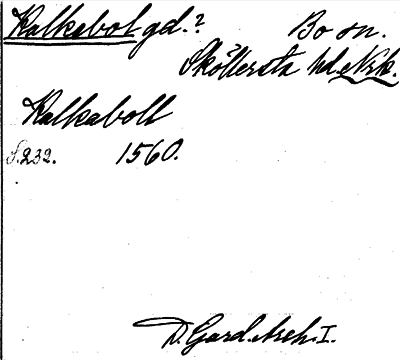 Kalkabol gd.? Bo sn.
Sköllersta hd, Nrk.
Kalkaboll
S.232. 1560.
D. Gard. Arch. I.